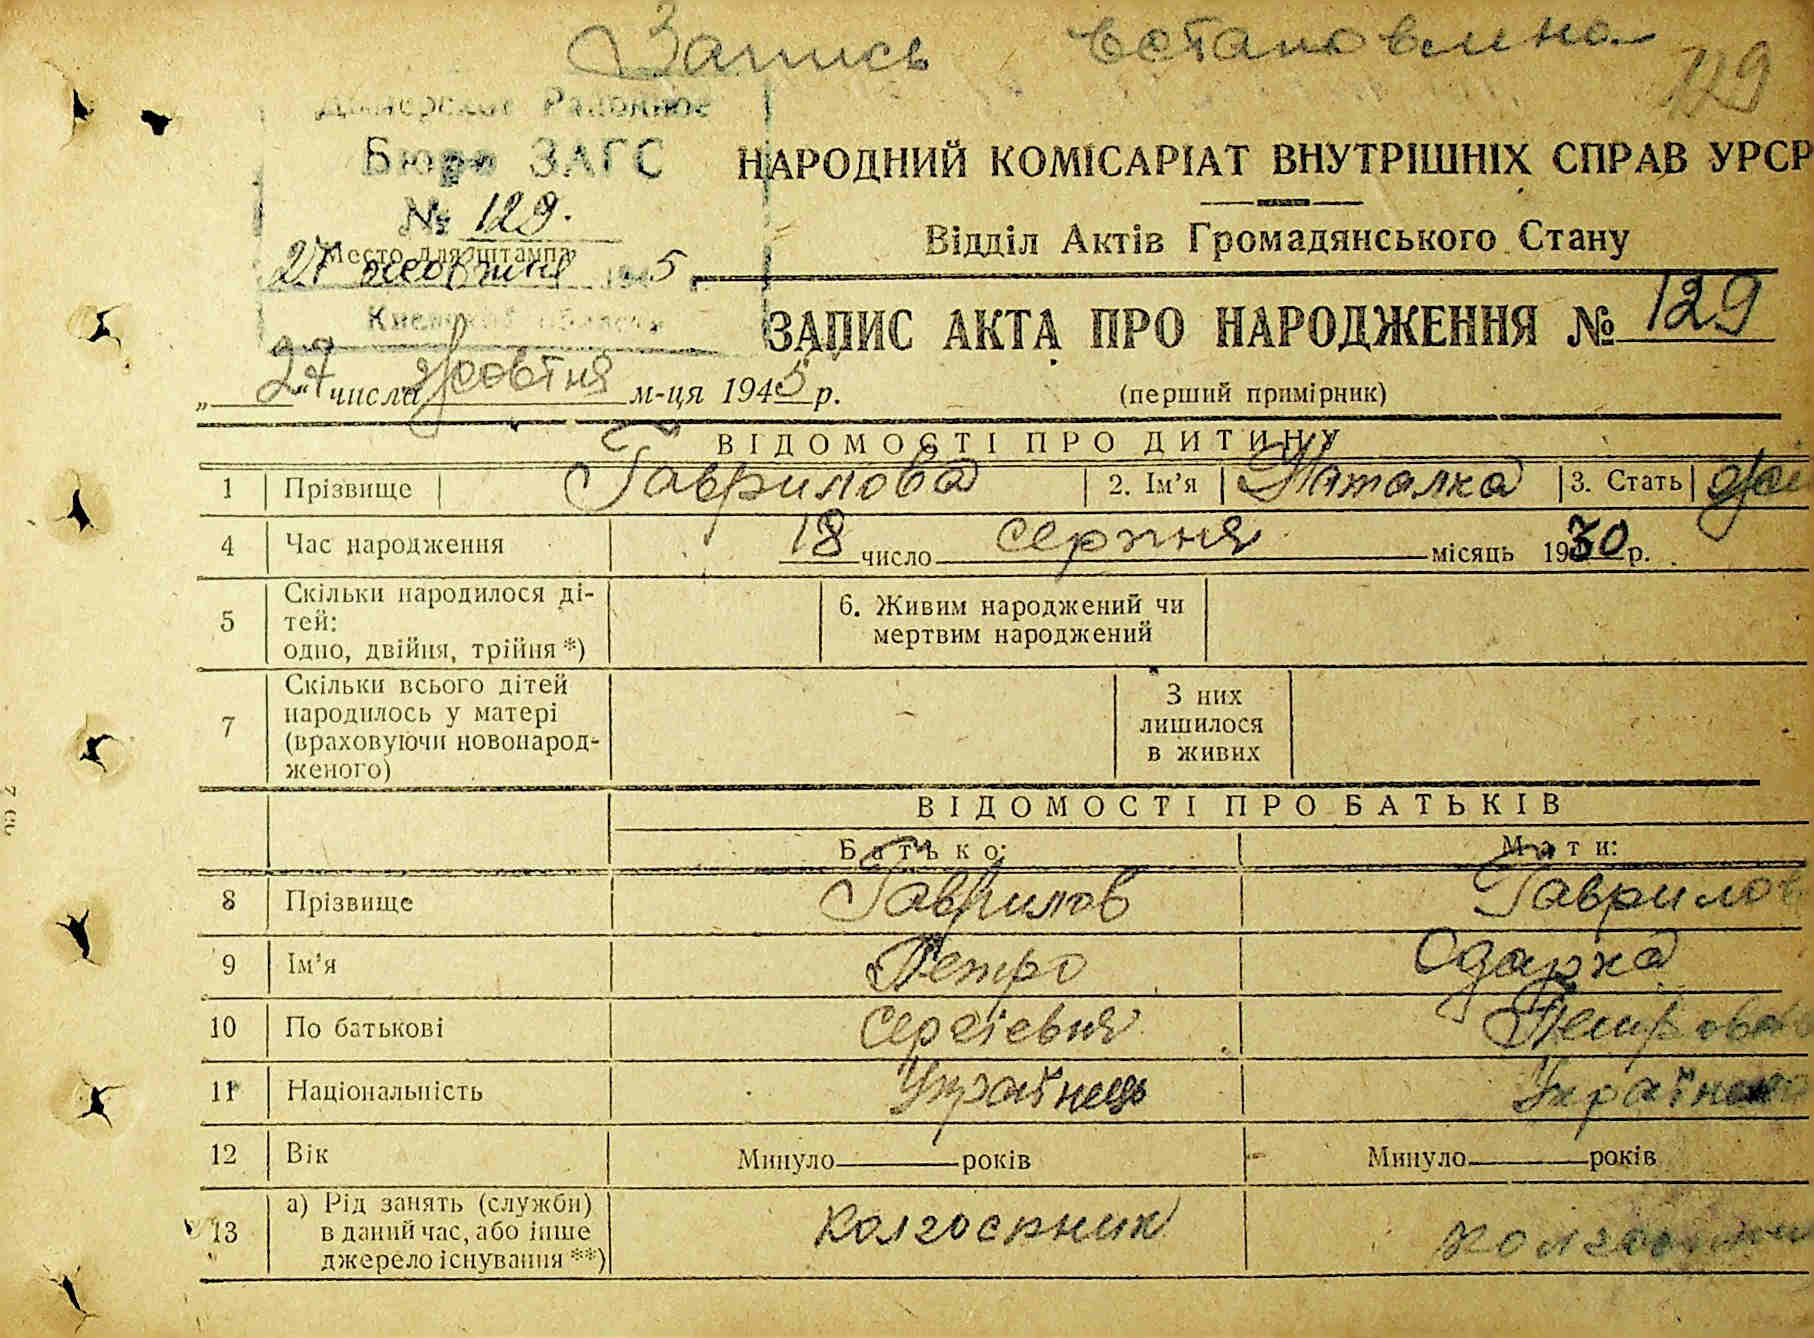 Запись встановлена
129
Димерское Районное
Бюро ЗАГС
№ 129.
Место для штампа
27 жовтня 1945
Киевской области
НАРОДНИЙ КОМІСАРІАТ ВНУТРІШНІХ СПРАВ УРСР
Відділ Актів Громадянського Стану
ЗАПИС АКТА ПРО НАРОДЖЕННЯ № 129
„27“ числа жовтня м-ця 1945 р.
(перший примірник)
ВІДОМОСТІ ПРО ДИТИНУ
1 Прізвище Гаврилова 2. Ім'я Наталка 3. Стать жі
4 Час народження 18 число серпня місяць 1930 р.
5 Скільки народилося ді-
тей:
одно, двійня, трійня *)
6. Живим народжений чи
мертвим народжений
7 Скільки всього дітей
народилось у матері
(враховуючи новонарод-
женого)
З них
лишилося
в живих
ВІДОМОСТІ ПРО БАТЬКІВ
Батько: Мати:
8 Прізвище Гаврилов Гаврилов
9 Ім'я Петро Одарка
10 По батькові Сергієвня Петров
11 Національність Українець Українка
12 Вік Минуло років Минуло років
13 а) Рід занять (служби)
в даний час, або інше
джерело існування **)
колгоспник